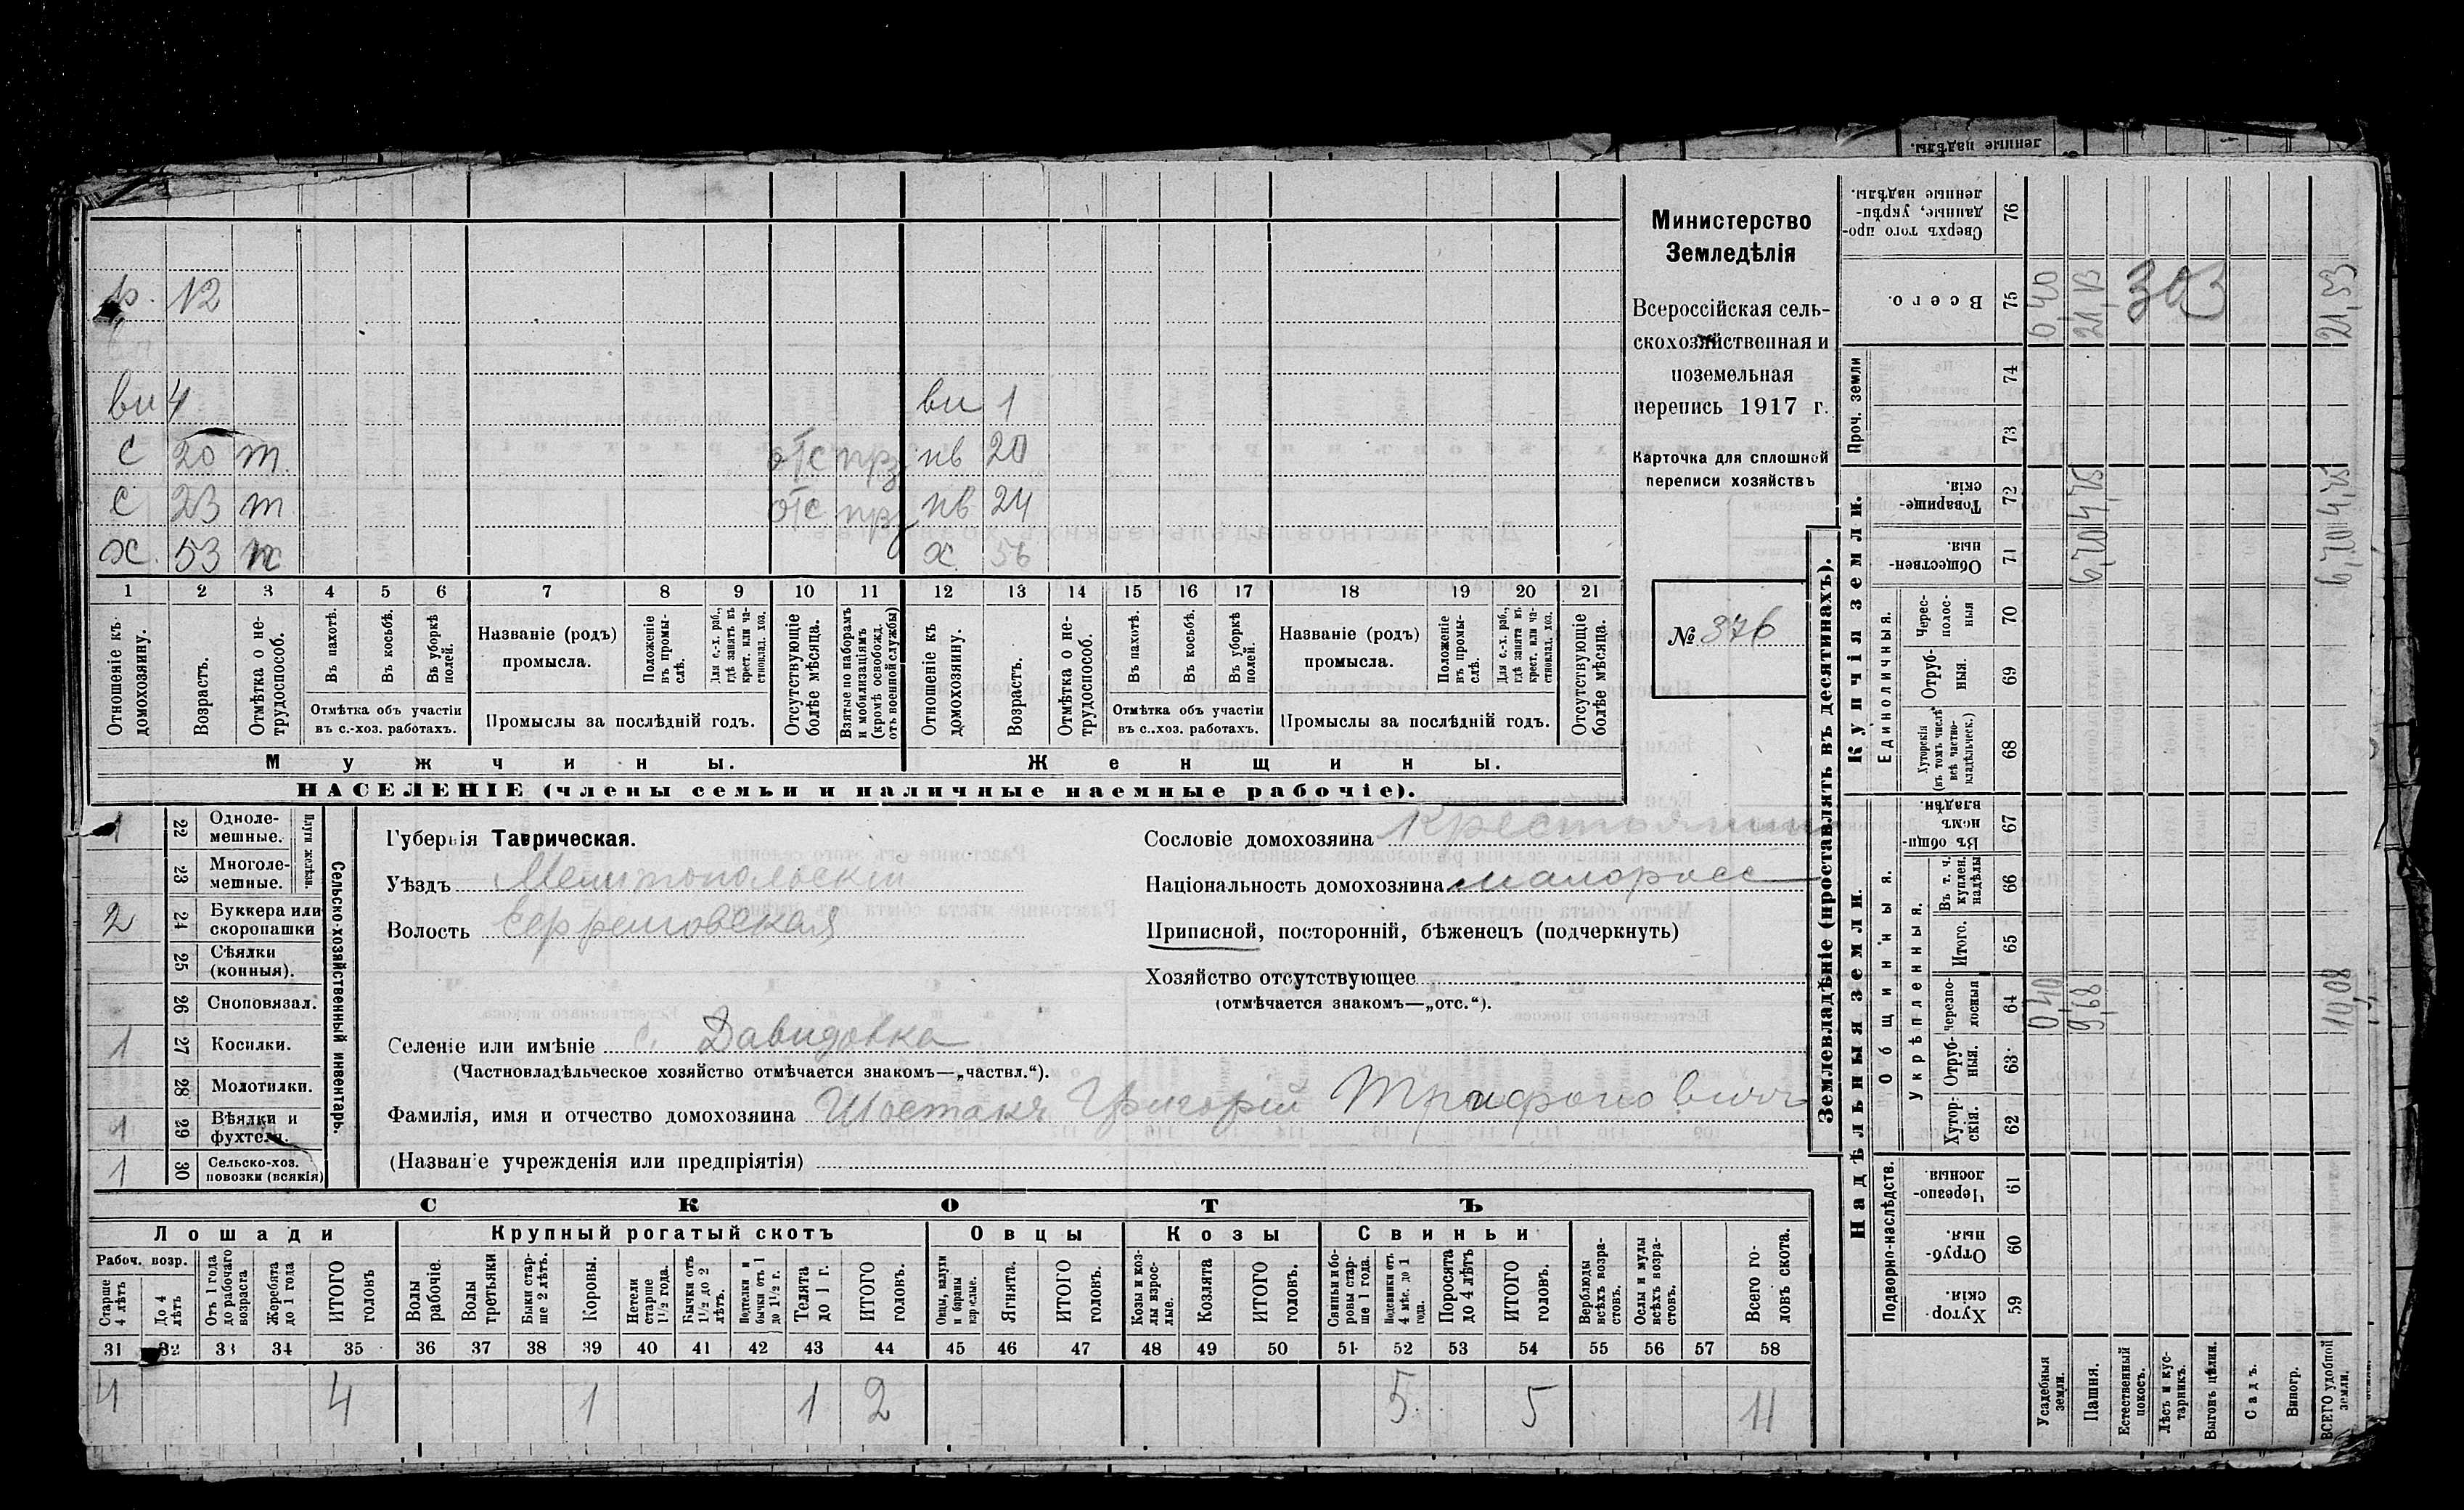 ленные надѣлы.
р. 12
вн 4 вн 1
с 20 т отс прз нв 20
с 23 т отс прз нв 24
х 53 х 56
1 2 3 4 5 6 7 8 9 10 11 12 13 14 15 16 17 18 19 20 21
Отношеніе къ домохозяину.
Возрастъ.
Отмѣтка о не-трудоспособ.
Въ пахотѣ.
Въ косьбѣ.
Въ уборкѣ полей.
Отмѣтка объ участіи въ с.-хоз. работахъ.
Названіе (родъ) промысла.
Положеніе въ промы-слѣ.
Для с.-х. раб., гдѣ занятъ въ крест. или ча-стновлад. хоз.
Промыслы за послѣдній годъ.
Отсутствующіе болѣе мѣсяца.
Взятые по наборамъ и мобилизаціямъ (кромѣ освобожд. отъ военной службы)
Отношеніе къ домохозяину.
Возрастъ.
Отмѣтка о не-трудоспособ.
Въ пахотѣ.
Въ косьбѣ.
Въ уборкѣ полей.
Отмѣтка объ участіи въ с.-хоз. работахъ.
Названіе (родъ) промысла.
Положеніе въ промы-слѣ.
Для с.-х. раб., гдѣ занятъ въ крест. или ча-стновлад. хоз.
Промыслы за послѣдній годъ.
Отсутствующіе болѣе мѣсяца.
Мужчины. Женщины.
НАСЕЛЕНІЕ (члены семьи и наличные наемные рабочіе).
Министерство
Земледѣлія
Всероссійская сель-
скохозяйственная и
поземельная
перепись 1917 г.
Карточка для сплошной
переписи хозяйствъ
№ 376
Сельско-хозяйственный инвентарь.
Плуги желѣзн.
1 22 Однолемешные.
23 Многолемешные.
2 24 Буккера или скоропашки
25 Сѣялки (конныя).
26 Сноповязал.
1 27 Косилки.
28 Молотилки.
1 29 Вѣялки и фухтели.
1 30 Сельско-хоз. повозки (всякія)
Губернія Таврическая.
Уѣздъ Мелитопольскій
Волость Ефремовская
Сословіе домохозяина Крестьянин
Національность домохозяина малоросс
Приписной, посторонній, бѣженецъ (подчеркнуть)
Хозяйство отсутствующее
(отмѣчается знакомъ—„отс.“).
Селеніе или имѣніе с. Давидовка
(Частновладѣльческое хозяйство отмѣчается знакомъ—„частвл.“).
Фамилія, имя и отчество домохозяина Шостакъ Григорій Трифонович
(Названіе учрежденія или предпріятія)
СКОТЪ
Лошади Крупный рогатый скотъ Овцы Козы Свиньи
Рабоч. возр.
Старше 4 лѣтъ
До 4 лѣтъ
Отъ 1 года до рабочаго возраста
Жеребята до 1 года
ИТОГО головъ
Волы рабочіе.
Волы третьяки
Быки стар-ше 2 лѣтъ.
Коровы.
Нетели старше 1½ года.
Бычки отъ 1½ до 2 лѣтъ.
Подтелки и бычки отъ 1 до 1½ г.
Телята до 1 г.
ИТОГО головъ.
Овцы, валухи и бараны взрослые.
Ягнята.
ИТОГО головъ.
Козы и коз-лы взрос-лые.
Козлята
ИТОГО головъ.
Свиньи и бо-ровы стар-ше 1 года.
Подсвинки отъ 4 мѣс. до 1 года.
Поросята до 4 лѣтъ
ИТОГО головъ.
Верблюды всѣхъ возра-стовъ.
Ослы и мулы всѣхъ возра-стовъ.
Всего го-ловъ скота.
31 32 33 34 35 36 37 38 39 40 41 42 43 44 45 46 47 48 49 50 51 52 53 54 55 56 57 58
4 4 1 1 2 5 5 11
Землевладѣніе (проставлять въ десятинахъ).
Надѣльныя земли. Купчія земли.
Проч. земли
Подворно-наслѣдств.
Общинныя.
Укрѣпленныя.
Единоличныя.
Хутор-скія. 59
Отруб-ныя. 60
Черезпо-лосныя 61
Хутор-скія. 62
Отруб-ныя. 63
Черезпо-лосныя 64
Итого. 65
Въ т. ч. куплен. надѣлы 66
Въ общин-номъ владѣн. 67
Хуторскія (въ томъ числѣ всѣ частно-владѣльческ.) 68
Отруб-ныя. 69
Черес-полос-ныя 70
Обществен-ныя. 71
Товарище-скія. 72
73
74
Всего. 75
Сверхъ того про-данные, укрѣп-ленные надѣлы. 76
Усадебныя земли. 0,40
Пашня. 9,68 6,70 4,75 21,13
Естественный покосъ. 303
Лѣсъ и кус-тарникъ.
Выгонъ цѣлин.
Садъ.
Виногр.
ВСЕГО удобной земли. 10,08 6,70 4,75 21,53